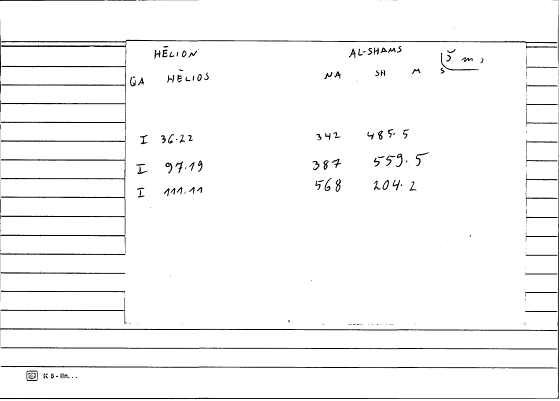 HĒLION AL-SHAMS š m,
QA HĒLIOS NA SH M S
I 36.22 342 485.5
I 97.19 387 559.5
I 111.11 568 204.2